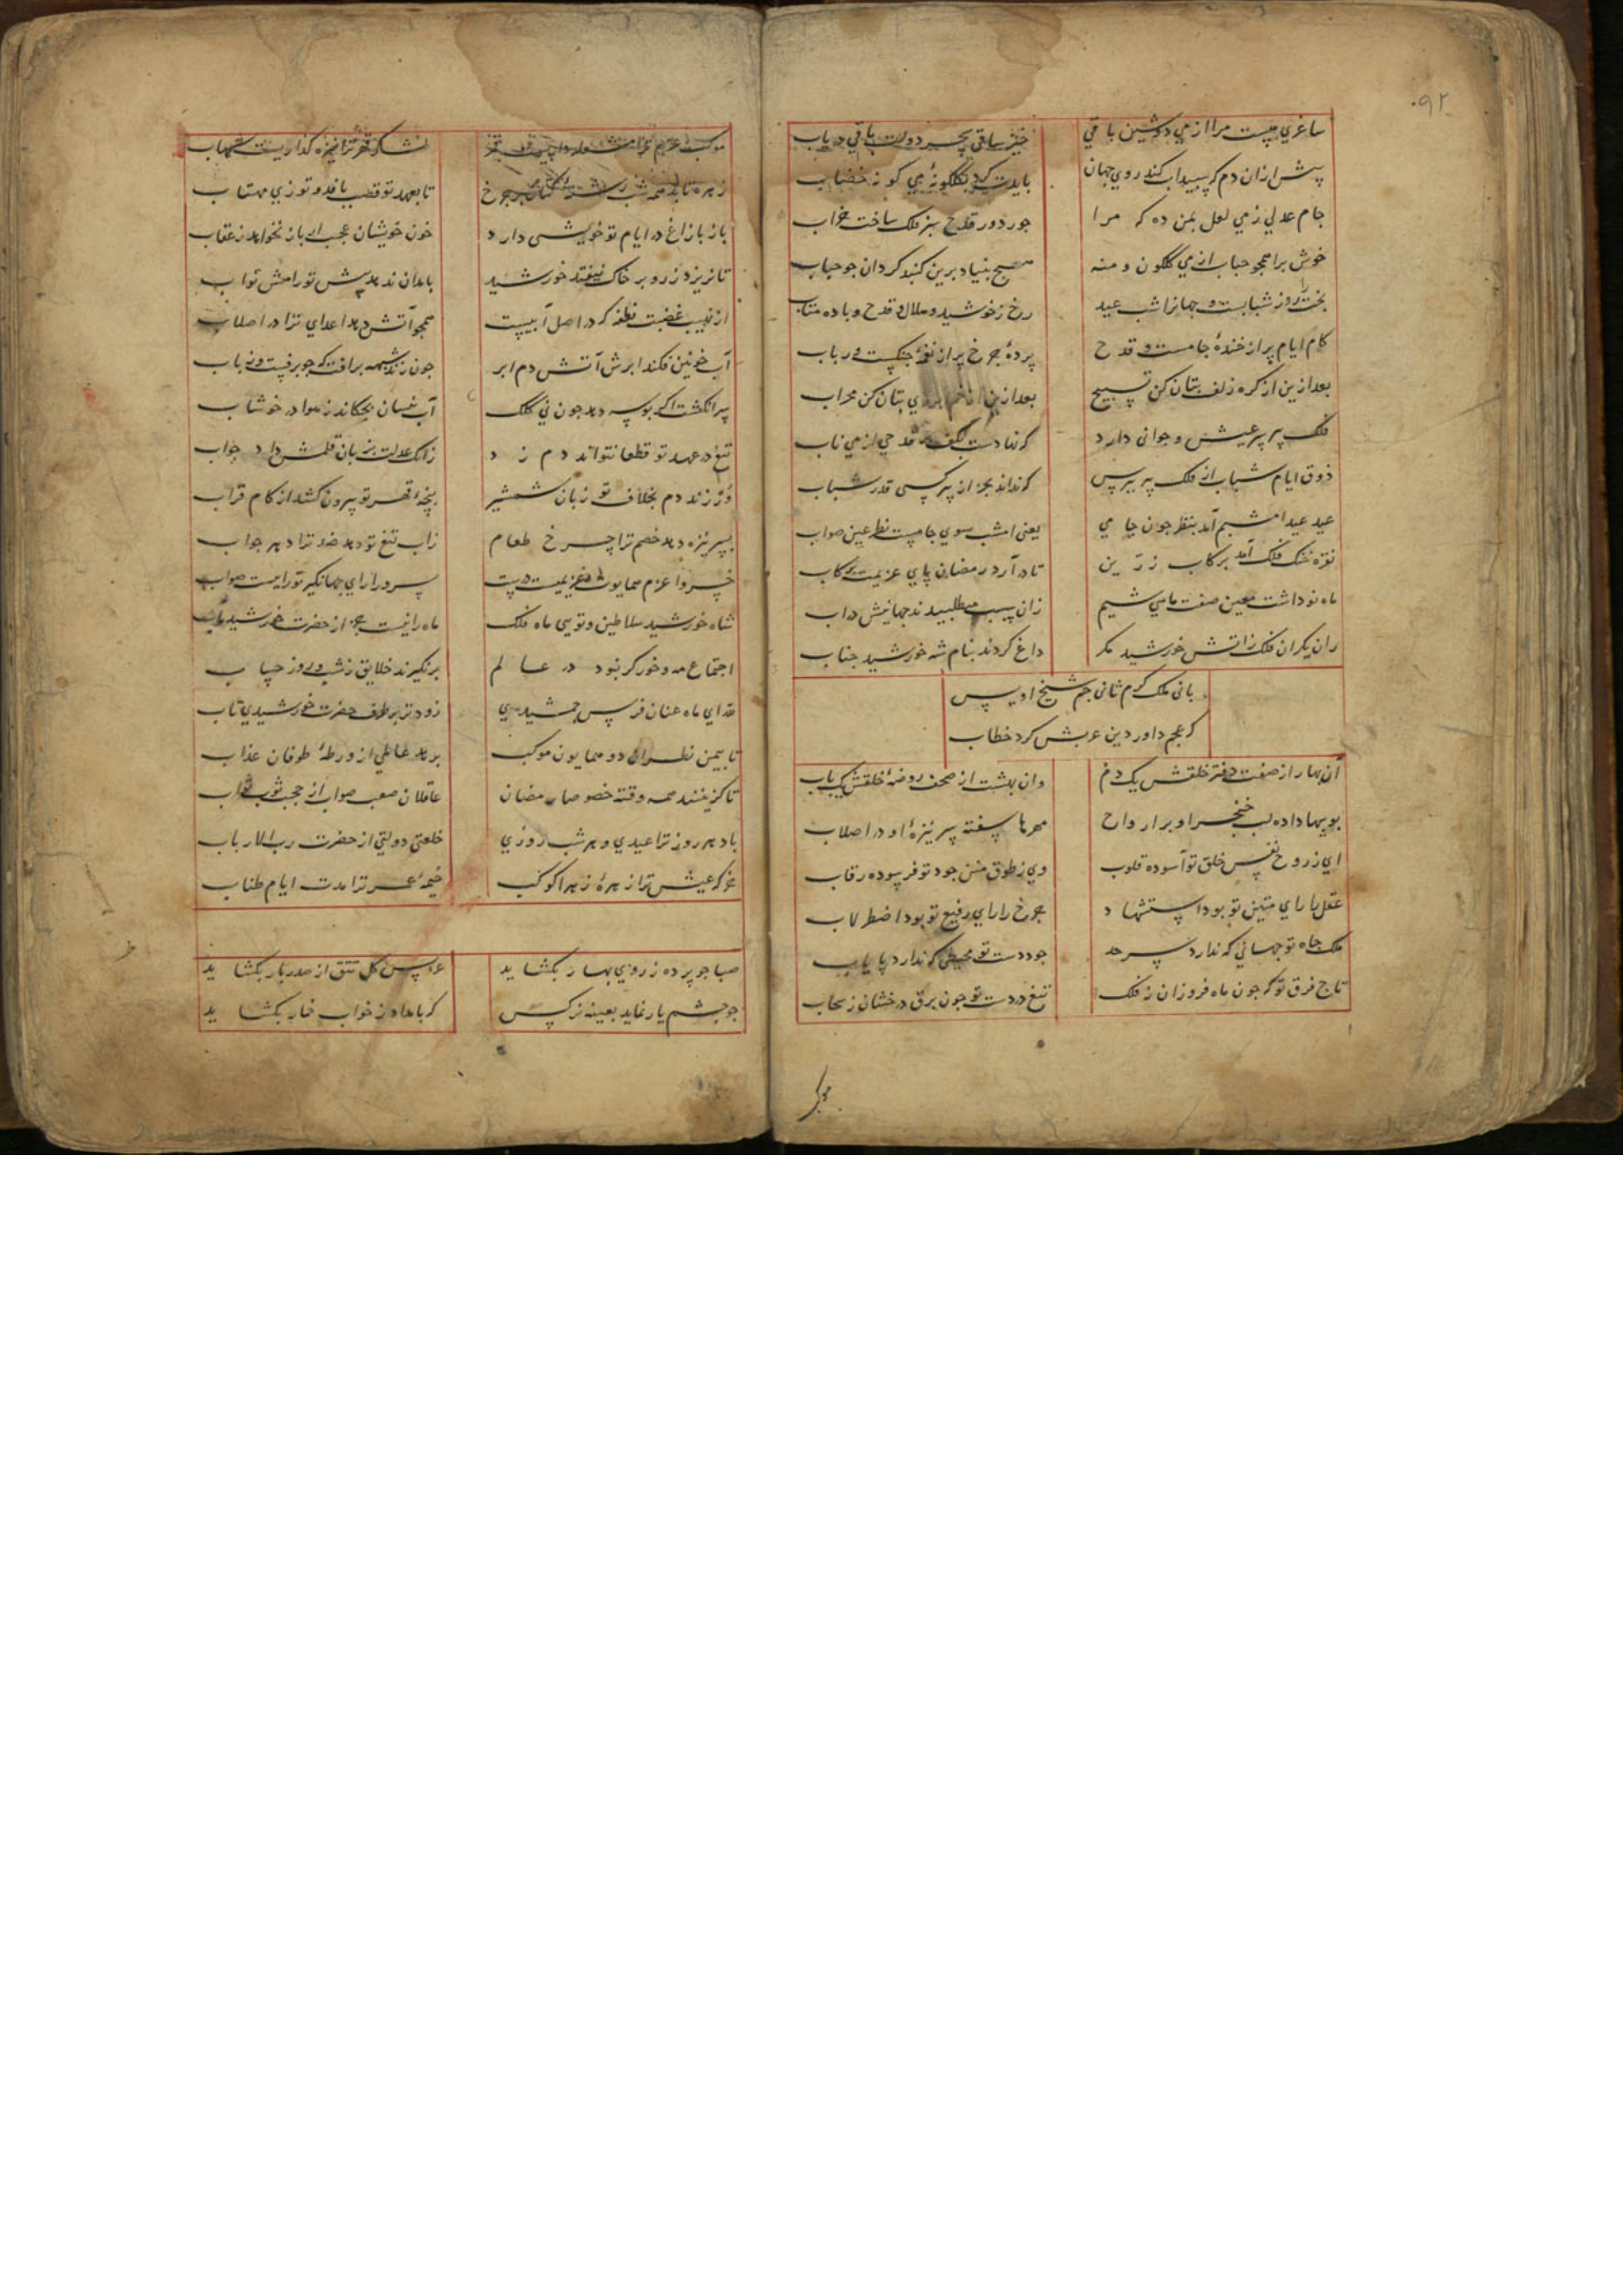 ۹۲
ساغری هست مرا از می دوشین باقی
خیز ساقی بجز دولت باقی دریاب
پیش ازان دم که سپیداب کند روی جهان
بایدت کرد بگلگونه می گونه خضاب
جام عدلی ز می لعل بمن ده که مرا
جور دور قدح سبز فلک ساخت خراب
خوش برا همچو حباب از می گلگون و منه
هیچ بنیاد برین گنبد گردان جو حباب
بخت را روز شبابست و جهانرا شب عید
رخ ز خورشید و هلال و قدح و باده متاب
کام ایام پر از خندهٔ جامست و قدح
پردهٔ جرخ پر از نغمهٔ جنگست و رباب
بعد ازین از گره زلف بتان کن تسبیح
بعد ازین از خم ابروی بتان کن محراب
فلک پیر سر عیش و جوانی دارد
که نهادست بکف بر قدحی از می ناب
ذوق ایام شباب از فلک پیر بپرس
که نداند بجز از پیر کسی قدر شباب
عید عیدا مشبم آمد بنظر جون جامی
یعنی امشب سوی جامست نظر عین صواب
نقره خنک فلک آمد برکاب زرین
تا در آرد رمضان پای عزیمت برکاب
ماه نو داشت معین صفت ماهی شیم
زان سبب میطلبیدند جهانیش در آب
ران یکران فلک زاتش خورشید مگر
داغ کردند بنام شه خورشید جناب
بانی ملک کرم ثانی جم شیخ اویس
که عجم داور دین عربش کرد خطاب
آن بهار از صفت دفتر خلقش یک دم
وان بهشت از صحف روضهٔ خلقش یک باب
بوسها داده لب خنجر او بر ارواح
مهرها سفته سر نیزهٔ او در اصلاب
ای ز روح نفس خلق تو آسوده قلوب
وی ز طوق منن جود تو فرسوده رقاب
عقل را رای متین تو بود استشهاد
جرخ را رای رفیع تو بود اضطرلاب
ملک جاه تو جهانی که ندارد سرحد
جود دست تو محیطی که ندارد پایاب
تاج فرق تو که جون ماه فروزان ز فلک
تیغ در دست تو جون برق درخشان ز سحاب
موکب
موکب عزم ترا مشعله دارست
لشکر قهر ترا نیزه گذاریست شهاب
زهره تابد همه شب بر جرخ
تا بعهد تو قصب بافد و توزی مهتاب
باز با زاغ در ایام تو خویشی دارد
خون خویشان عجب ار باز نخواهد ز عقاب
تا نریزد زر و بر خاک نیفتد خورشید
بامدان ندهد پیش تو رامش تواب
از نهیب غضبت نطفه که در اصل آبیست
همجو آتش دهد اعدای ترا در اصلاب
آب خونین فکند ابرش آتش دم ابر
جون زند شیهه براقت که جو برقیست و باب
سر انگشت اگر بوسه دهد جون نی کلک
آب نیسان بچکاند ز هوا در خوشاب
تیغ در عهد تو قطعا نتواند دم زد
زانک عدلت بزبان قلمش داد جواب
ور زند دم بخلاف تو زبان شمشیر
پنجهٔ قهر تو بیرون کشد از کام قراب
بسر نیزه دهد خصم ترا جرخ طعام
زاب تیغ تو دهد ضد ترا دهر جواب
خسروا عزم همایون عزیمت
سرورا رای جهانگیر تو رایست صواب
شاه خورشید سلاطین و تویی ماه فلک
ماه را نیست بجز از حضرت خورشید مآب
اجتماع مه و خور گر نبود در عالم
برنگیرند خلایق ز شب و روز حساب
عقد ای ماه عنان فرس جمشیدی
زودتر بر طرف حضرت خورشیدی تاب
تا بیمن نظر آن دو همایون موکب
برهد عالمی از ورطهٔ طوفان عذاب
تا گزینند همه وقتی خصوصا رمضان
عاقلان صعب صواب از جهت ثوب ثواب
باد هر روز ترا عیدی و هر شب روزی
خلعتی دولتی از حضرت رب الارباب
خرکه عیش ترا زهرهٔ زهرا کوکب
خیمهٔ عمر ترا مدت ایام طناب
صبا جو پرده ز روی بهار بگشاید
عروس گل تتق از صدر بار بگشاید
جو جشم یار نماید بعینه نرگس
که بامداد ز خواب خمار بگشاید